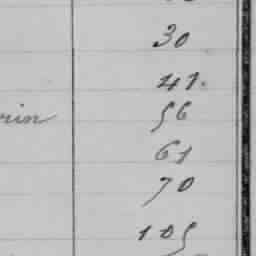 30
41.
rin 56
61
70
105